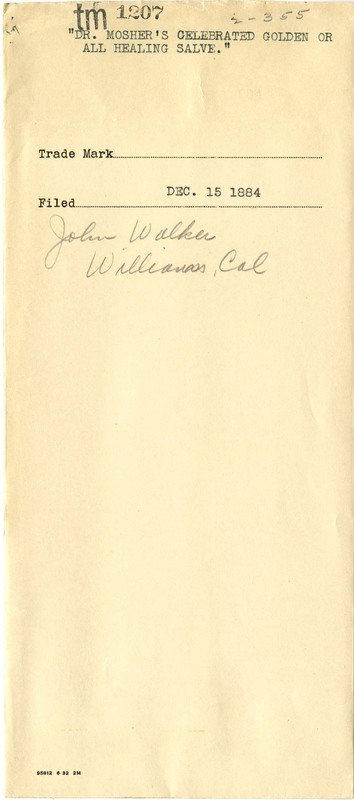 tm 1207 2-355
"DR. MOSHER'S CELEBRATED GOLDEN OR
ALL HEALING SALVE."
Trade Mark
DEC. 15 1884
Filed
John Walker
Williams, Cal